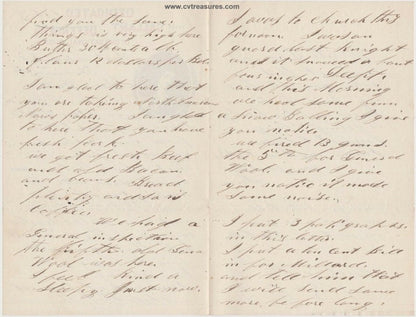 www.cvtreasures.com
find you the same.
Things is very high here
Butter 30 cents a lb
Flour 12 dollars per
I am glad to here that
you are taking a
News paper. I am glad
to here that you have
fresh pork.
we get fresh beef
and old Bacon
and beans. Bread
plenty and
coffee.
We had a
General inspection
the fifth and Gen
Wool was here.
I feel kind a
sleepy just now.
I was to church this
forenoon I was on
guard last night
and it snowed about
four inches deep
and this Morning
we had some fun
a Snow Balling I give
you notice
we fired 13 guns
the 5th for General
Wool and I give
you notice it made
some noise.
I put 3
in this letter.
I put a ten cent bill
in for Millard
and tell him that
I will send some
more be fore long.